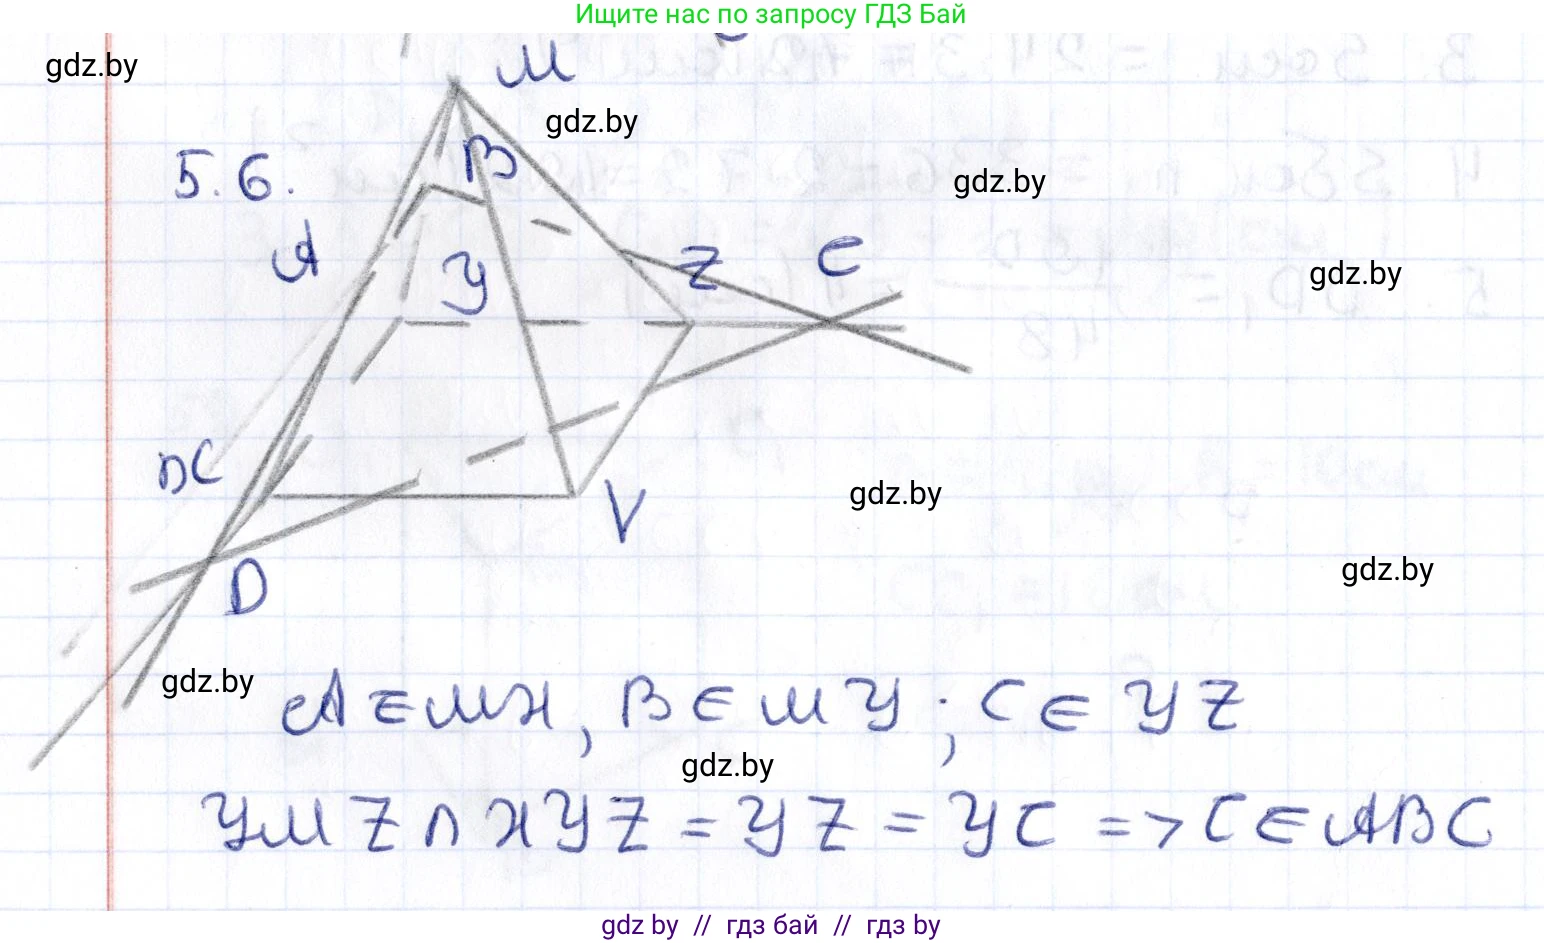 Ищите нас по запросу ГДЗ Бай
gdz.by
M
gdz.by
B
5.6.
gdz.by
A
Y
Z
C
gdz.by
X
gdz.by
V
D
gdz.by
gdz.by
A ∈ MX, B ∈ MY; C ∈ YZ
gdz.by
YMZ ∩ XYZ = YZ = YC => C ∈ ABC
gdz by // гдз бай // гдз by